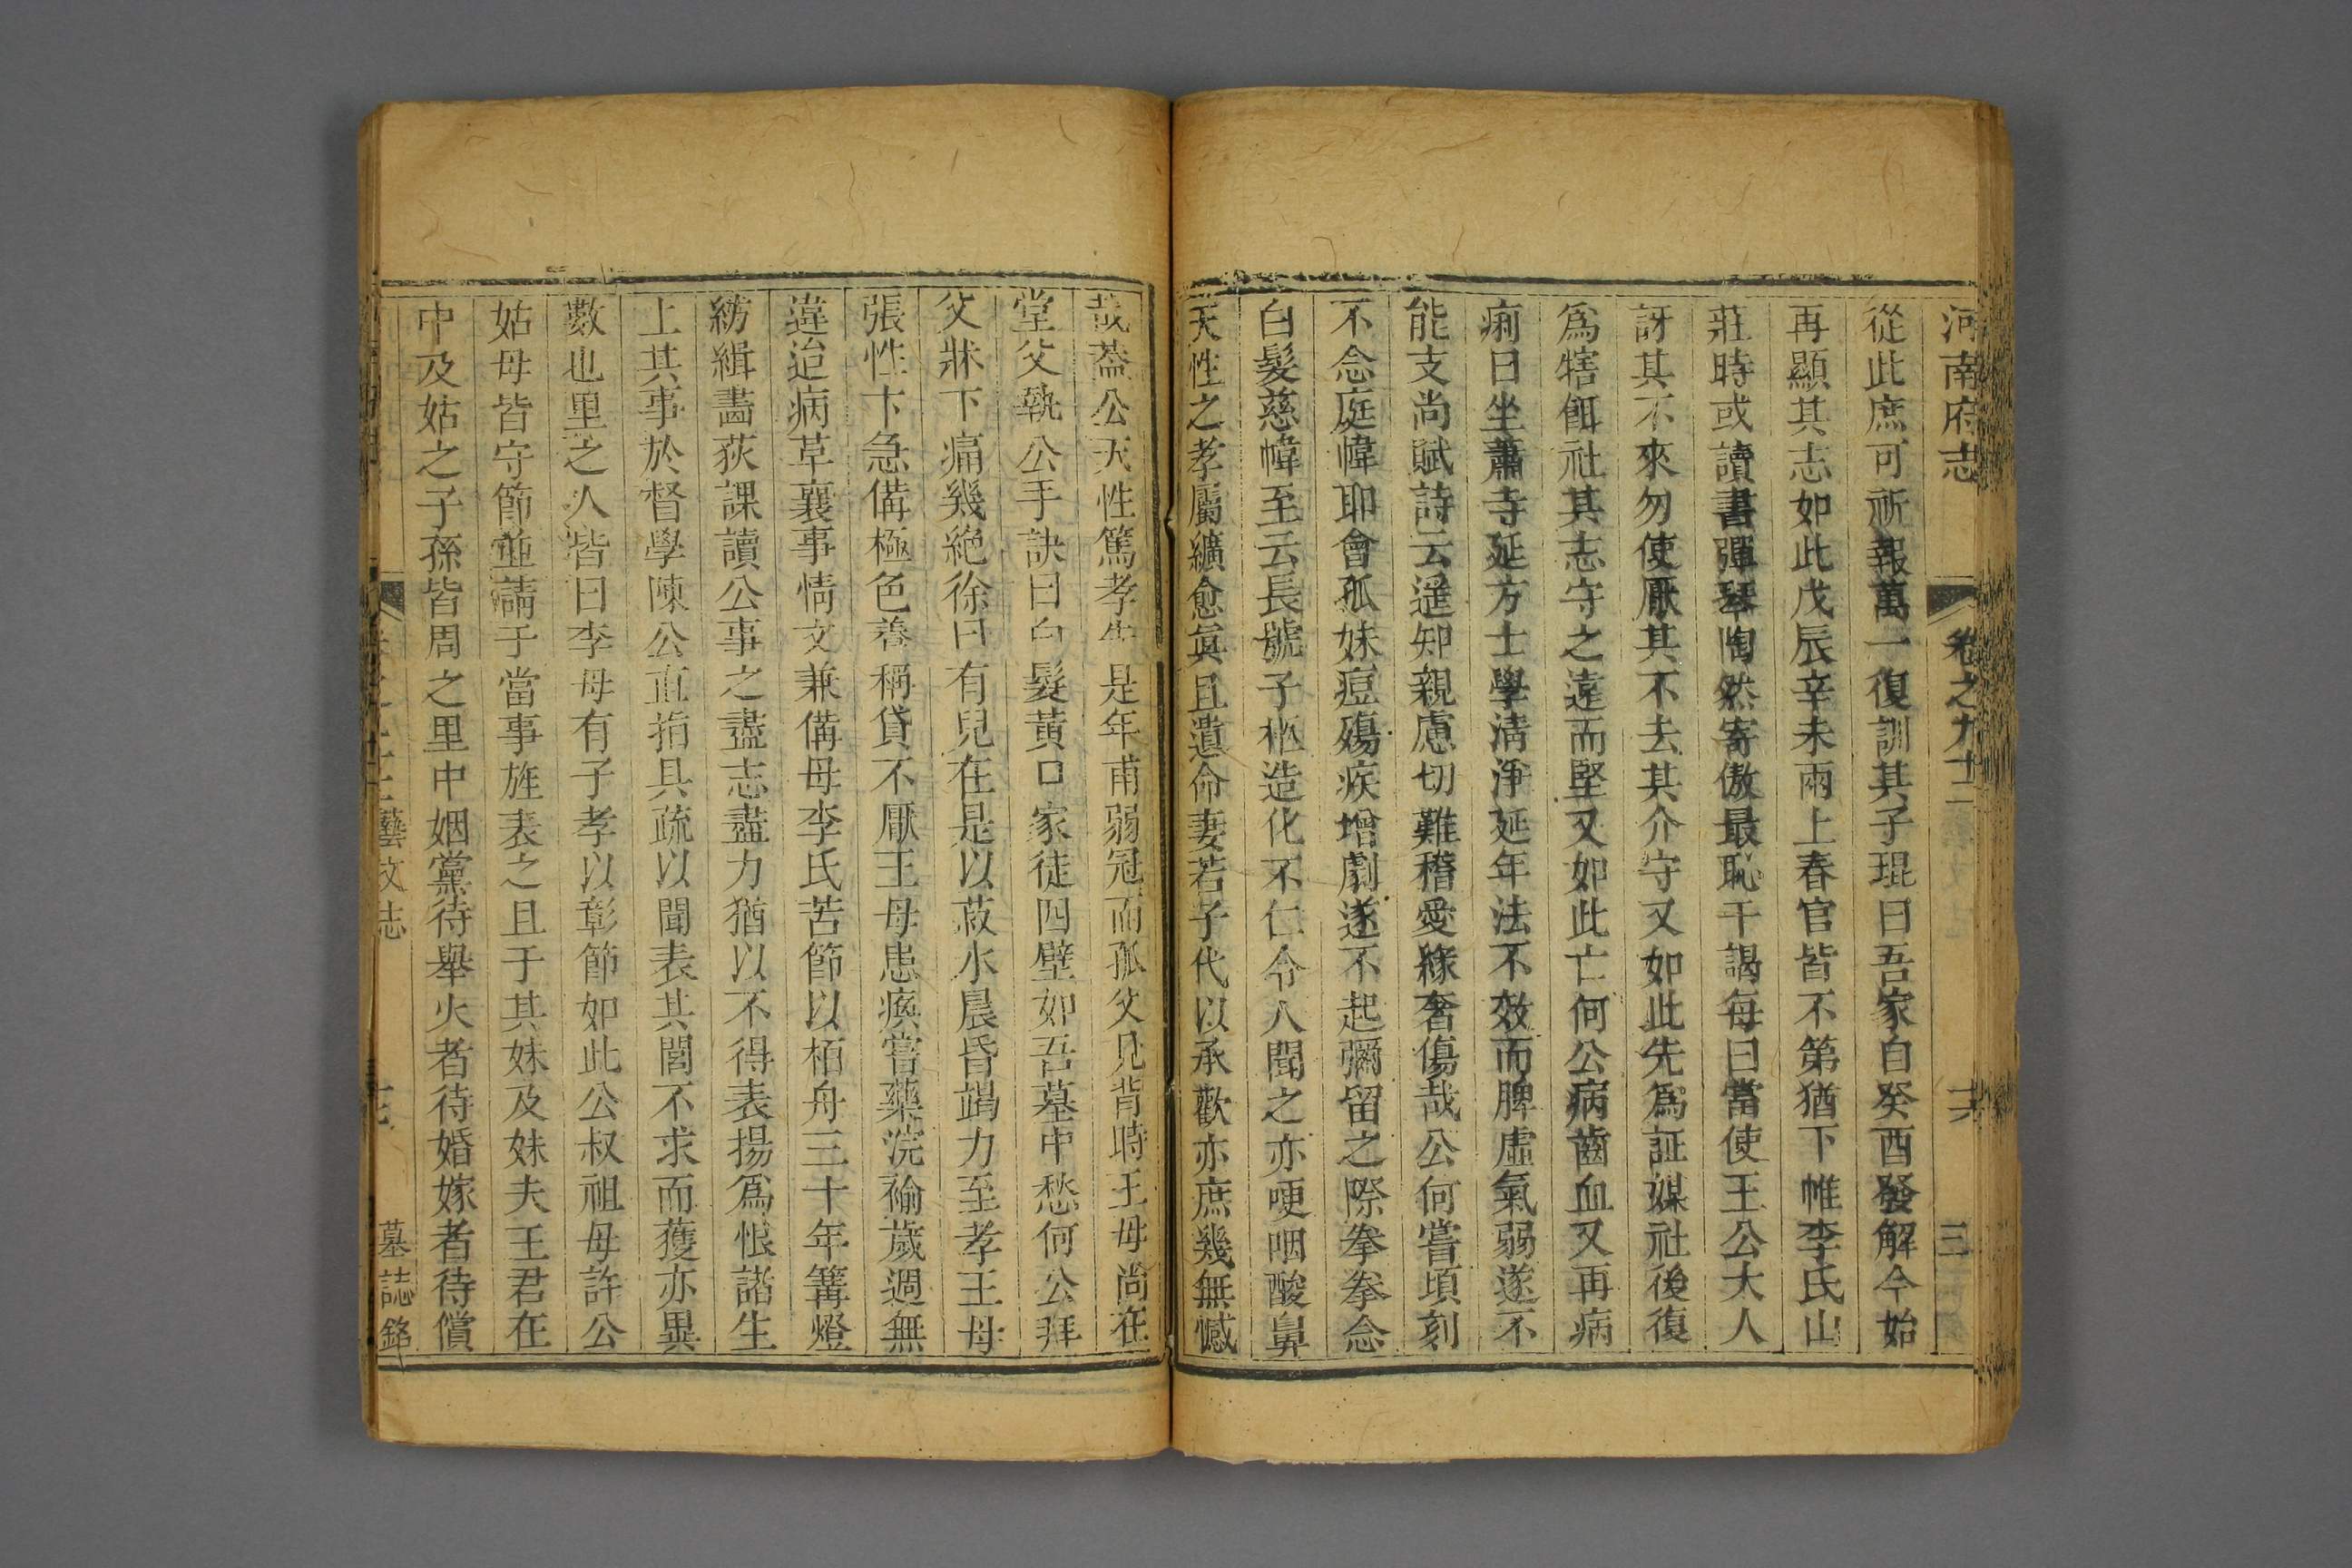 河南府志 卷之九十二 十六 三
從此庶可祈報萬一復訓其子琨曰吾家自癸酉發解今始
再顯其志如此戊辰辛未兩上春官皆不第猶下帷李氏山
莊時或讀書彈琴陶然寄傲最恥干謁每曰當使王公大人
訝其不來勿使厭其不去其介守又如此先爲証媒社後復
爲犗餌社其志守之遠而堅又如此亡何公病齒血又再病
痢日坐蕭寺延方士學清淨延年法不效而脾虛氣弱遂不
能支尚賦詩云遥知親慮切難稽愛緣奢傷哉公何嘗頃刻
不念庭幃耶會孤妹痘殤疾增劇遂不起彌留之際拳拳念
白髮慈幃至云長號子柩造化不仁令人聞之亦哽咽酸鼻
天性之孝屬纊愈眞且遺命妻若子代以承歡亦庶幾無憾
哉蓋公天性篤孝先是年甫弱冠而孤父見背時王母尚在
堂父執公手訣曰白髮黃口家徒四壁如吾墓中愁何公拜
父牀下痛幾絶徐曰有兒在是以菽水晨昏竭力至孝王母
張性卞急備極色養稱貸不厭王母患瘓嘗藥浣褕歲週無
違迨病革襄事情文兼備母李氏苦節以栢舟三十年篝燈
紡緝畵荻課讀公事之盡志盡力猶以不得表揚爲恨諮生
上其事於督學陳公直指具疏以聞表其閭不求而獲亦異
數也里之人皆曰李母有子孝以彰節如此公叔祖母許公
姑母皆守節並請于當事旌表之且于其妹及妹夫王君在
中及姑之子孫皆周之里中姻黨待舉火者待婚嫁者待償
藝文志 墓誌銘